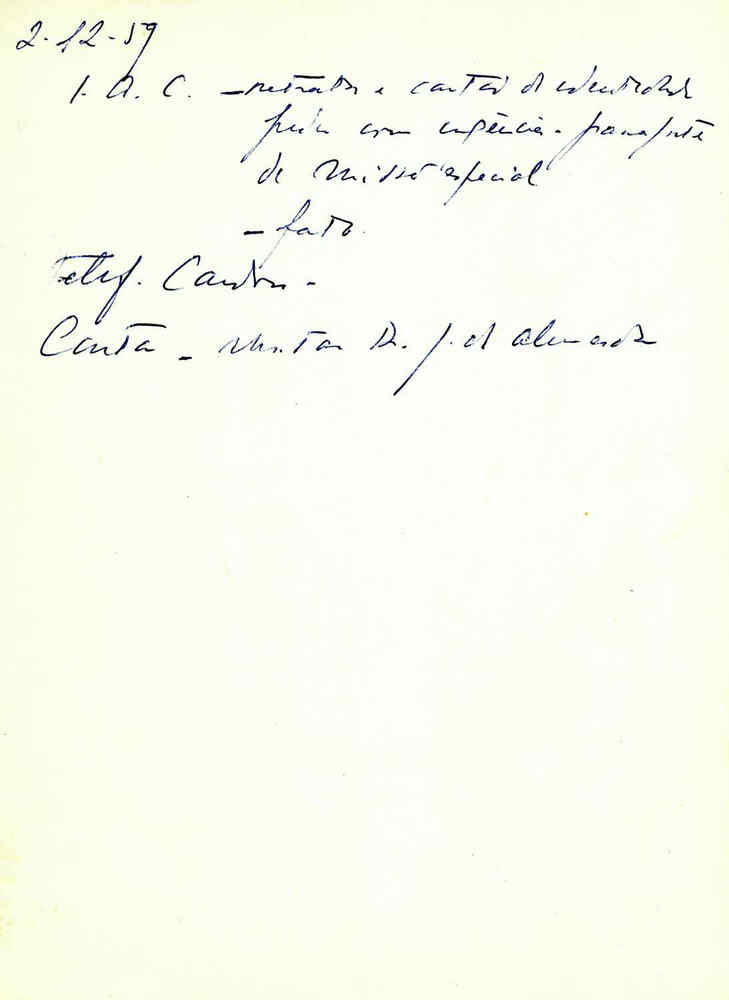 2-12-59
I. A. C. - retratos e cartão de identidade
pedir com urgência - passaporte
de missão especial
- fato.
Telef.
Carta - de Almeida